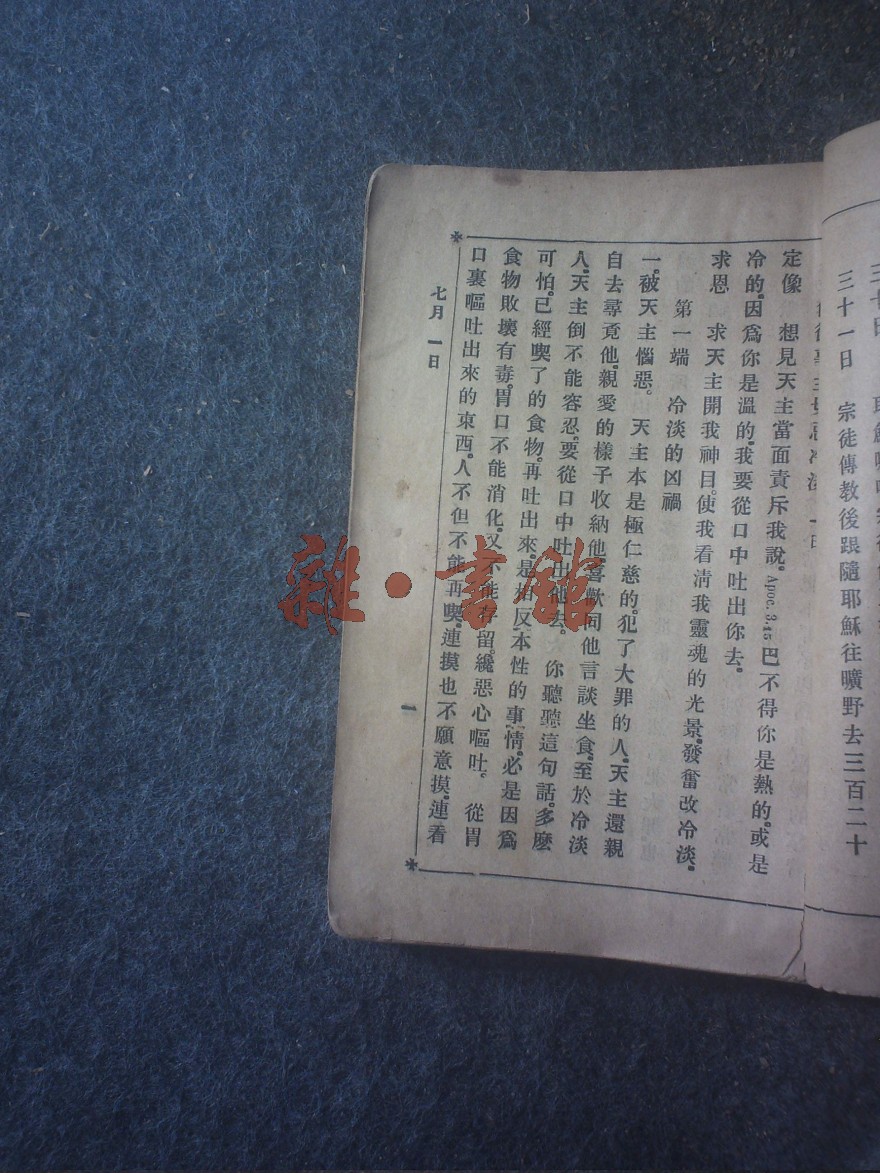 三十一日　宗徒傳教後跟隨耶穌往曠野去三百二十
定像　想見天主當面責斥我說。Apoc. 3.15 巴不得你是熱的。或是
冷的。因爲你是溫的。我要從口中吐出你去。
求恩　求天主開我神目。使我看清我靈魂的光景。發奮改冷淡。
第一端　冷淡的凶禍
一。被天主惱惡。　天主本是極仁慈的。犯了大罪的人。天主還親
自去尋竟他。親愛的樣子收納他。喜歡同他言談坐食。至於冷淡
人。天主倒不能容忍。要從口中吐出他去。　你聽聽這句話。多麽
可怕。已經喫了的食物。再吐出來。是相反本性的事情。必是因爲
食物敗壞有毒。胃口不能消化。又不能存留。纔惡心嘔吐。　從胃
口裏嘔吐出來的東西。人不但不能再喫。連摸也不願意摸。連看
七月一日
一
雜·書館